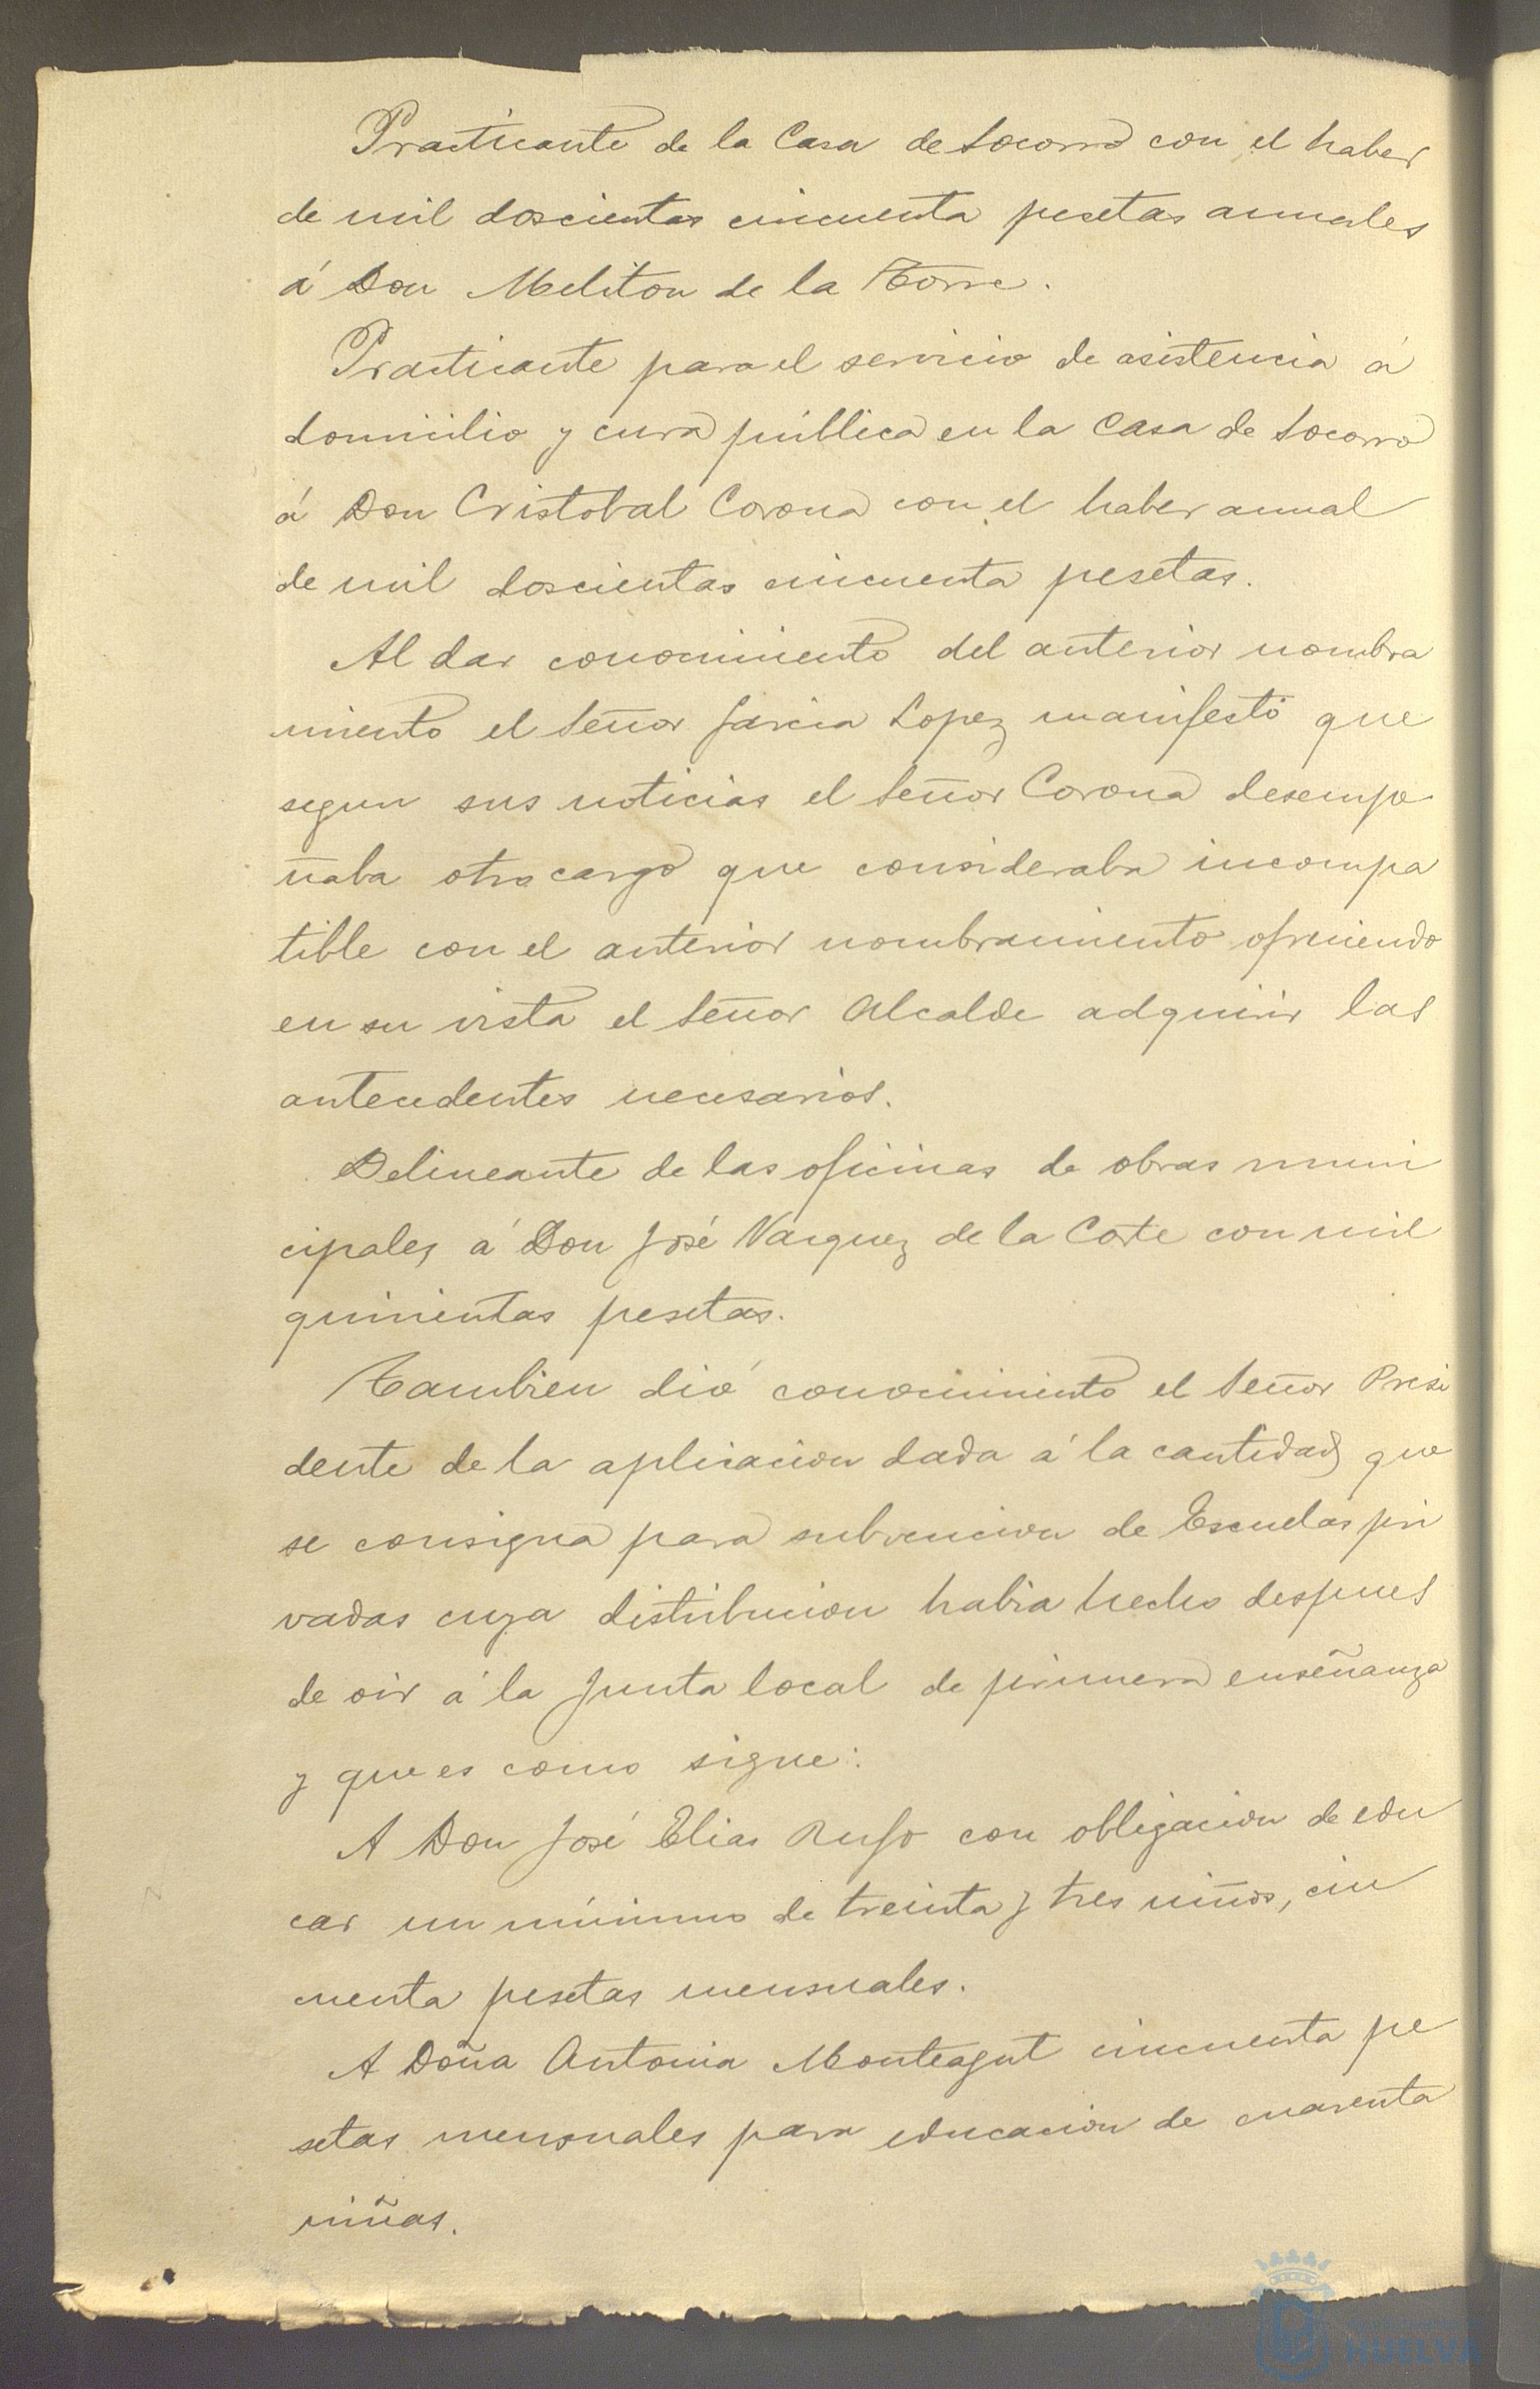 Practicante de la Casa de Socorro con el haber
de mil doscientas cincuenta pesetas anuales
á Don Meliton de la Torre.
Practicante para el servicio de asistencia á
domicilio y cura pública en la Casa de Socorro
á Don Cristobal Corona con el haber anual
de mil doscientas cincuenta pesetas.
Al dar conocimiento del anterior nombra
miento el Señor Garcia Lopez manifestó que
segun sus noticias el Señor Corona desempe
ñaba otro cargo que consideraba incompa
tible con el anterior nombramiento ofreciendo
en su vista el Señor Alcalde adquirir las
antecedentes necesarios.
Delineante de las oficinas de obras muni
cipales á Don José Vazquez de la Corte con mil
quinientas pesetas.
Tambien dió conocimiento el Señor Presi
dente de la aplicacion dada á la cantidad que
se consigna para subvencion de Escuelas pri
vadas cuya distribucion habia hecho despues
de oir á la Junta local de primera enseñanza
y que es como sigue:
A Don José Elias Rufo con obligacion de edu
car un mínimo de treinta y tres niños, cin
cuenta pesetas mensuales.
A Doña Antonia Monteagut cincuenta pe
setas mensuales para educacion de cuarenta
niñas.
HUELVA